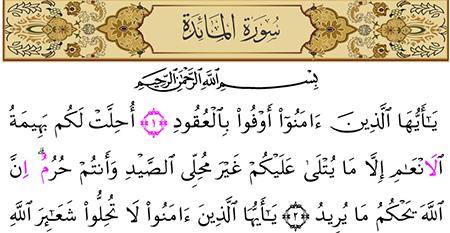 سُورَةُ المَائِدَة
بِسْمِ اللَّهِ الرَّحْمَٰنِ الرَّحِيمِ
يَٰٓأَيُّهَا ٱلَّذِينَ ءَامَنُوٓا۟ أَوْفُوا۟ بِٱلْعُقُودِ ﴿١﴾ أُحِلَّتْ لَكُم بَهِيمَةُ
ٱلْأَنْعَٰمِ إِلَّا مَا يُتْلَىٰ عَلَيْكُمْ غَيْرَ مُحِلِّى ٱلصَّيْدِ وَأَنتُمْ حُرُمٌ ۗ إِنَّ
ٱللَّهَ يَحْكُمُ مَا يُرِيدُ ﴿٢﴾ يَٰٓأَيُّهَا ٱلَّذِينَ ءَامَنُوا۟ لَا تُحِلُّوا۟ شَعَٰٓئِرَ ٱللَّهِ